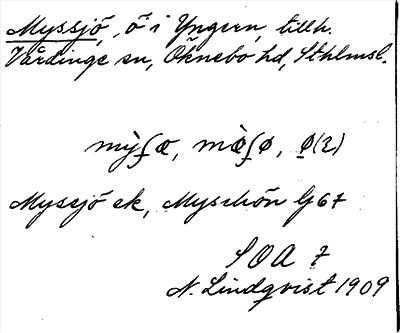 Myssjö, ö i Yngern, tillh.
Vårdinge sn, Öknebo hd, Sthlmsl.
mỳʃæ, mø̀ʃø, ø̱(2)
Myssjö ek, Myschön G67
SOA 7
N. Lindqvist 1909